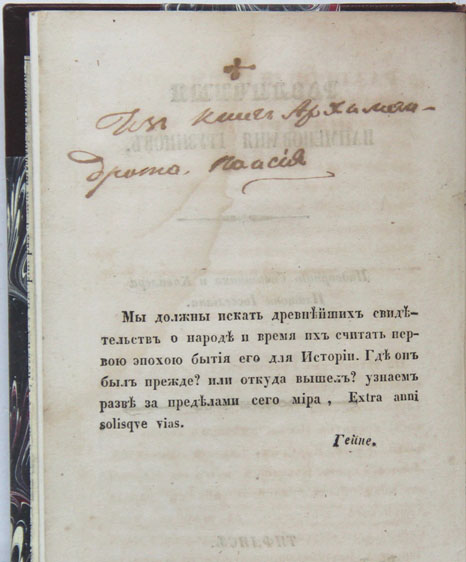 Изъ книгъ Архиман-
дрита Паисія
Мы должны искать древнѣйшихъ свидѣ-
тельствъ о народѣ и время ихъ считать пер-
вою эпохою бытія его для Исторіи. Гдѣ онъ
былъ прежде? или откуда вышелъ? узнаемъ
развѣ за предѣлами сего міра, Extra anni
solisqve vias.
Гейне.
ТИФЛИСЪ